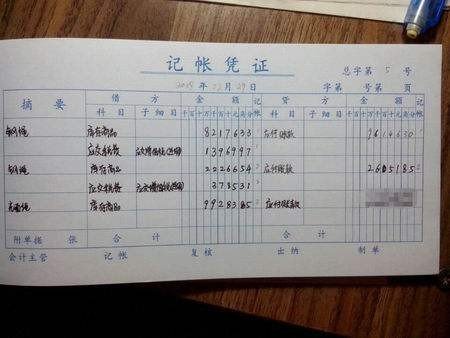 记帐凭证
总字第 5 号
年 12 月 29 日 字第 号第 页
摘要 借方 金额 记帐 贷方 金额 记帐
科目 子细目 千百十万千百十元角分 科目 子细目 千百十万千百十元角分
库存商品 8217633 应付账款 9614630
应交税费 应交增值税(进项) 1396997
库存商品 2226654 应付账款 2605185
应交税费 应交增值税(进项) 378531
库存商品 9928385 应付账款
附单据 张 合计 合计
会计主管 记帐 复核 出纳 制单